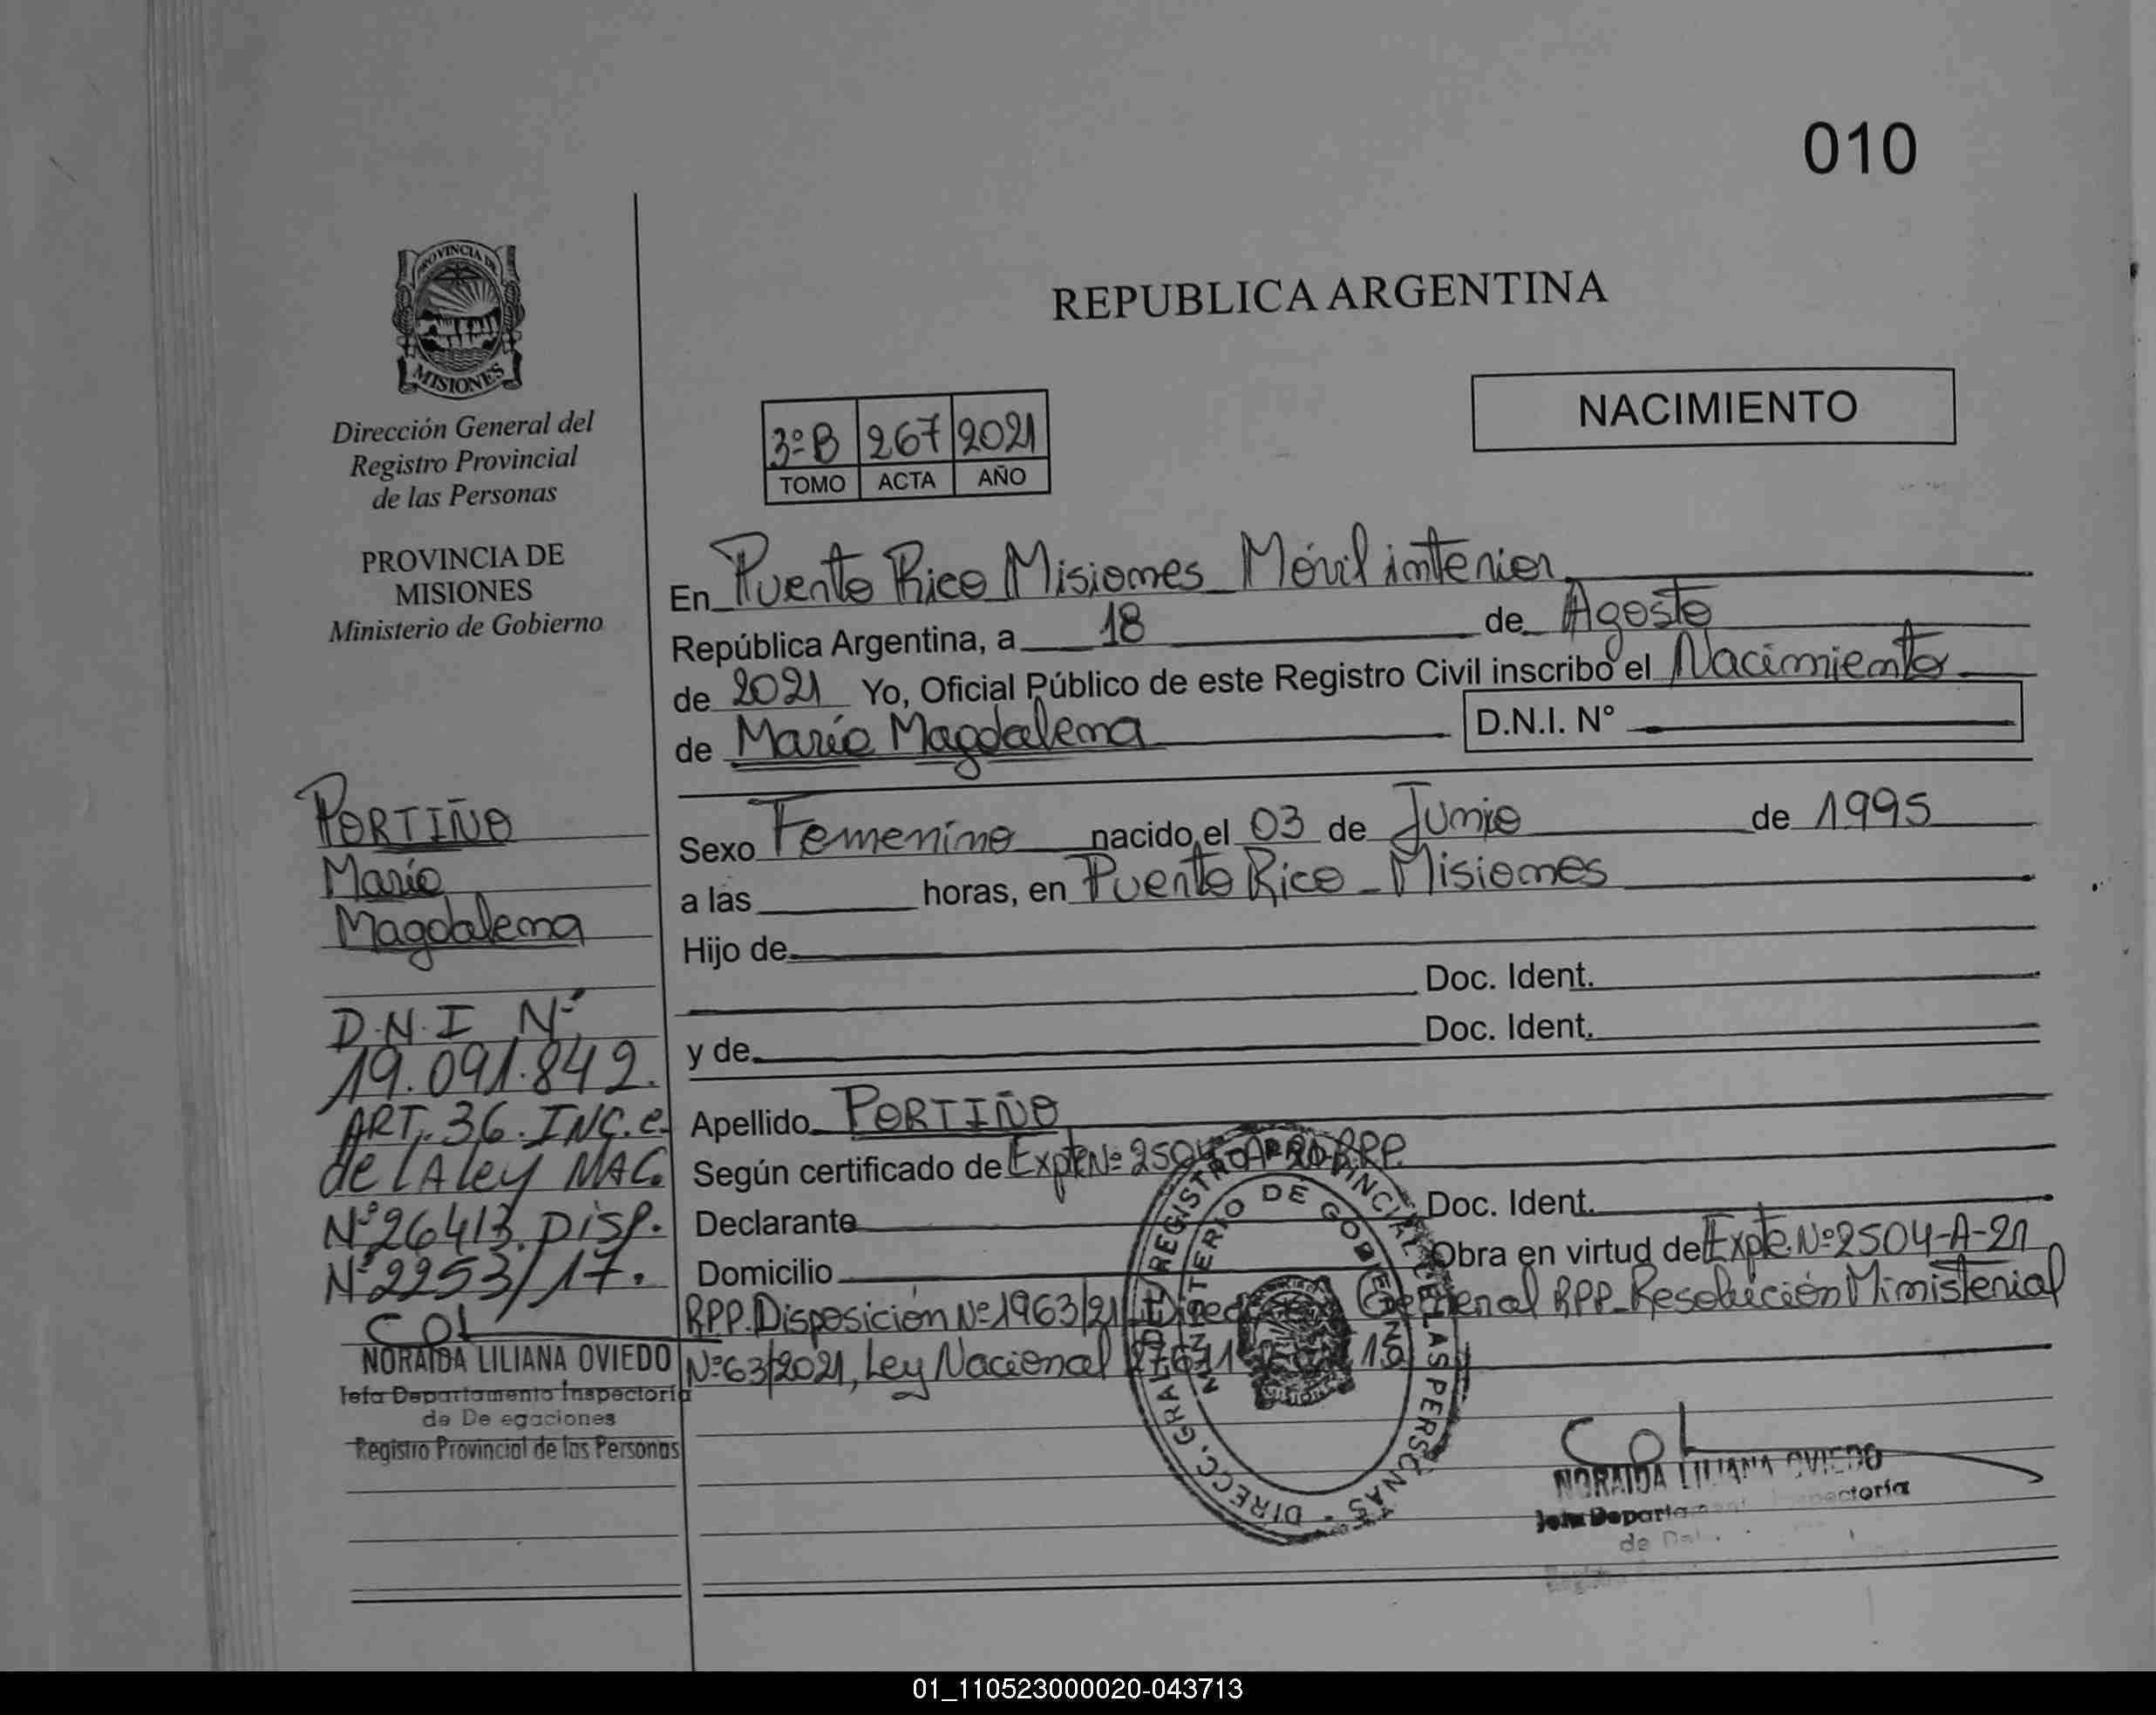 010
PROVINCIA DE
MISIONES
Dirección General del
Registro Provincial
de las Personas
PROVINCIA DE
MISIONES
Ministerio de Gobierno
PORTIÑO
María
Magdalena
D.N.I Nº
19.091.842.
ART. 36. INC. e.
de LA ley NAC.
Nº 26413. DISP.
Nº 2253/17.
NORAIDA LILIANA OVIEDO
Jefa Departamento Inspectoría
de De egaciones
Registro Provincial de las Personas
REPUBLICA ARGENTINA
NACIMIENTO
3º B 267 2021
TOMO ACTA AÑO
En Puerto Rico Misiones Móvil interior
República Argentina, a 18 de Agosto
de 2021 Yo, Oficial Público de este Registro Civil inscribo el Nacimiento
de María Magdalena D.N.I. Nº
Sexo Femenino nacido el 03 de Junio de 1995
a las horas, en Puerto Rico - Misiones
Hijo de
Doc. Ident.
y de Doc. Ident.
Apellido PORTIÑO
Según certificado de Expte Nº 2504-A-21-RPP.
Declarante Doc. Ident.
Domicilio Obra en virtud de Expte. Nº 2504-A-21
RPP. Disposición Nº 1963/21 General RPP_Resolución Ministerial
Nº 63/2021, Ley Nacional
DIRECC. GRAL. DEL REGISTRO PROVINCIAL DE LAS PERSONAS -
MINISTERIO DE GOBIERNO
NORAIDA LILIANA OVIEDO
01_110523000020-043713